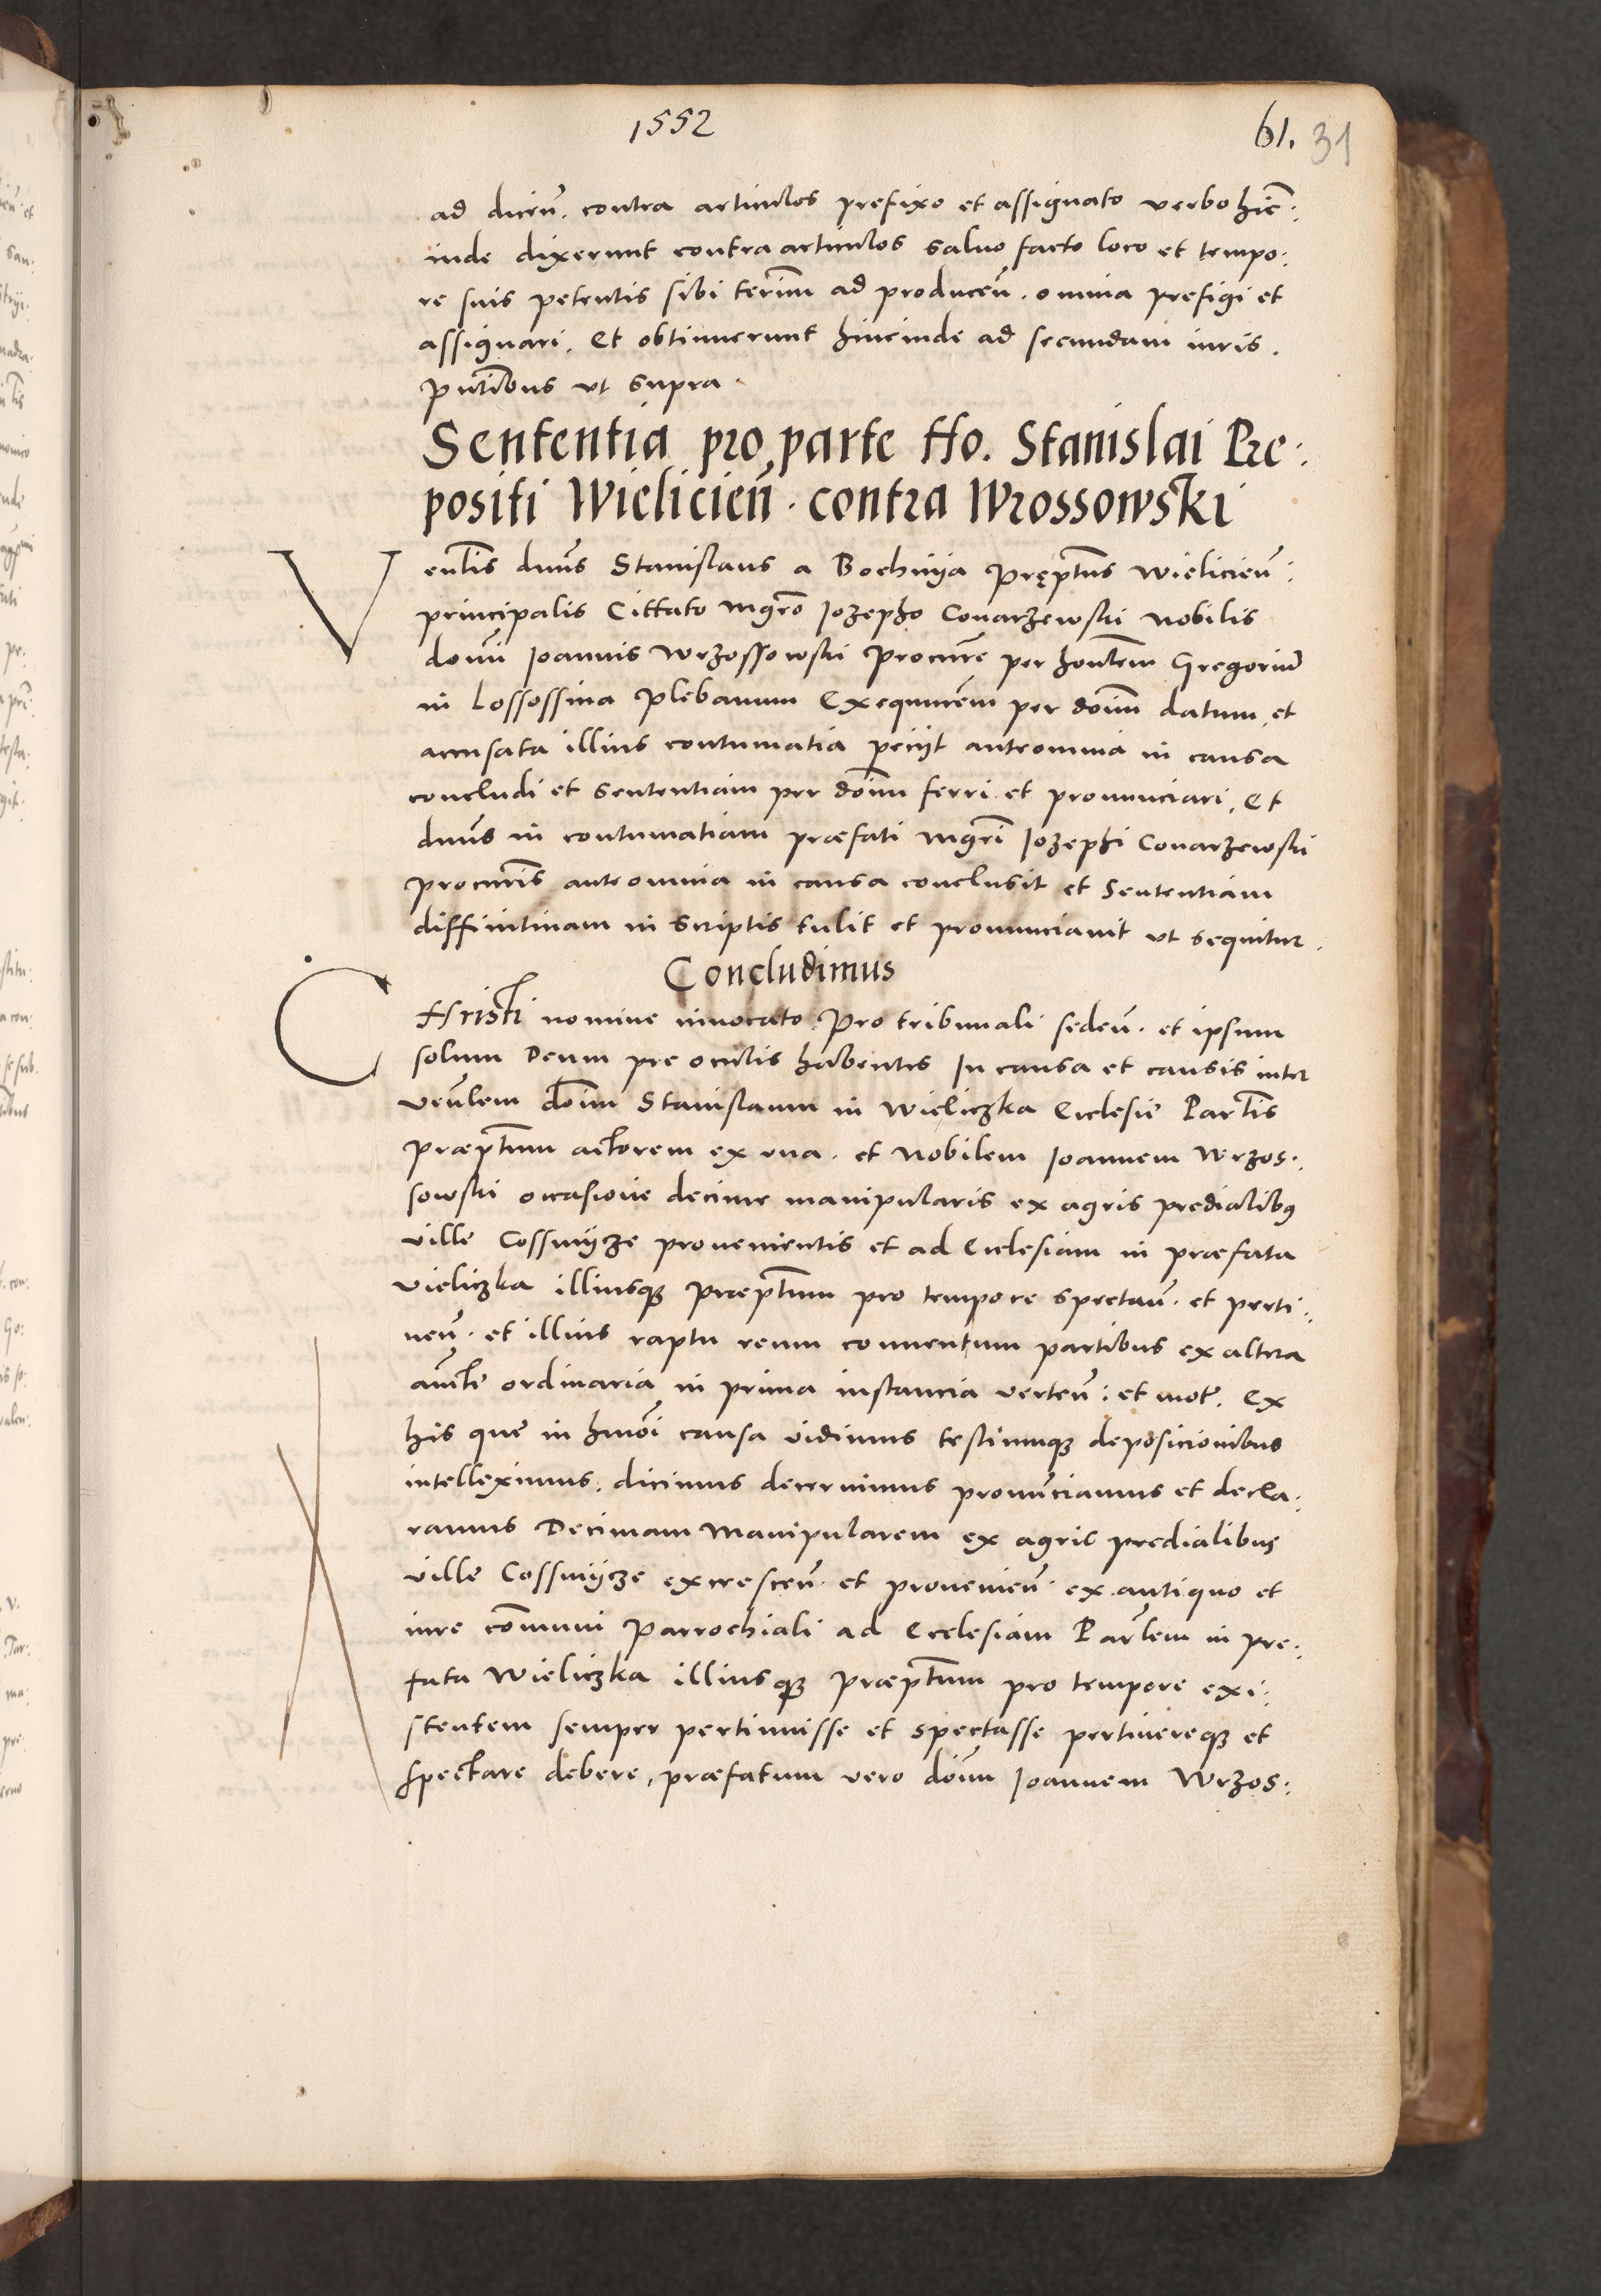 1552
61. 31
ad dicen̄. contra articulos prefixo et assignato verbo hic̄:
inde dixerunt contra articulos saluo facto loco et tempo:
re suis petentis sibi termī ad producen̄. omnia prefigi et
assignari. Et obtinuerunt hincinde ad secundam iuris.
Pntibus ut supra.
Sententia pro parte Ho. Stanislai Pre:
positi Wielicien̄. contra Wrossowski
Venlis dnūs Stanislaus a Bochnija Pręptūs Wielicien̄:
principalis Cittato mgrō Jozepho Conarzewski Nobilis
domī Joannis Wrzossowski Procurē per hontem Gregoriū
in Lossossina Plebanum Exequutēm per domī datum et
accusata illius contumatia peciit anteomnia in causa
concludi et sententiam per domī ferri et pronunciari. Et
dnūs in contumatiam præfati mgrī Jozephi Conarzewski
procuris anteomnia in causa conclusit et Sententiam
diffinitiuam in scriptis tulit et pronunciauit ut sequitur.
Concludimus
CHristi nomine inuocato Pro tribunali seden̄. et ipsum
solum Deum pre oculis habentes In causa et causis inter
Venlem domī Stanislaum in Wieliczka Ecclesie Partis
præptum actorem ex una. et Nobilem Joannem Wrzos:
sowski occasione decime manipularis ex agris predialibus
ville Cossmijcze prouenientis et ad Ecclesiam in præfata
vieliczka illiusque præptum pro tempore spectan̄. et perti:
nen̄. et illius raptu reum conuentum partibus ex altera
autte ordinaria in prima instancia verten̄: et mot. Ex
his que in hmōi causa vidimus testiumque deposicionibus
intelleximus. dicimus decernimus pronunciamus et decla:
ramus Decimam Manipularem ex agris predialibus
ville Cossmijcze excrescen̄. et prouenien̄. ex antiquo et
iure cōmuni Parrochiali ad Ecclesiam Parlem in pre:
fata Wieliczka illiusque præptum pro tempore exi:
stentem semper pertinuisse et spectasse pertinereque et
spectare debere, præfatum vero domī Joannem Wrzos: